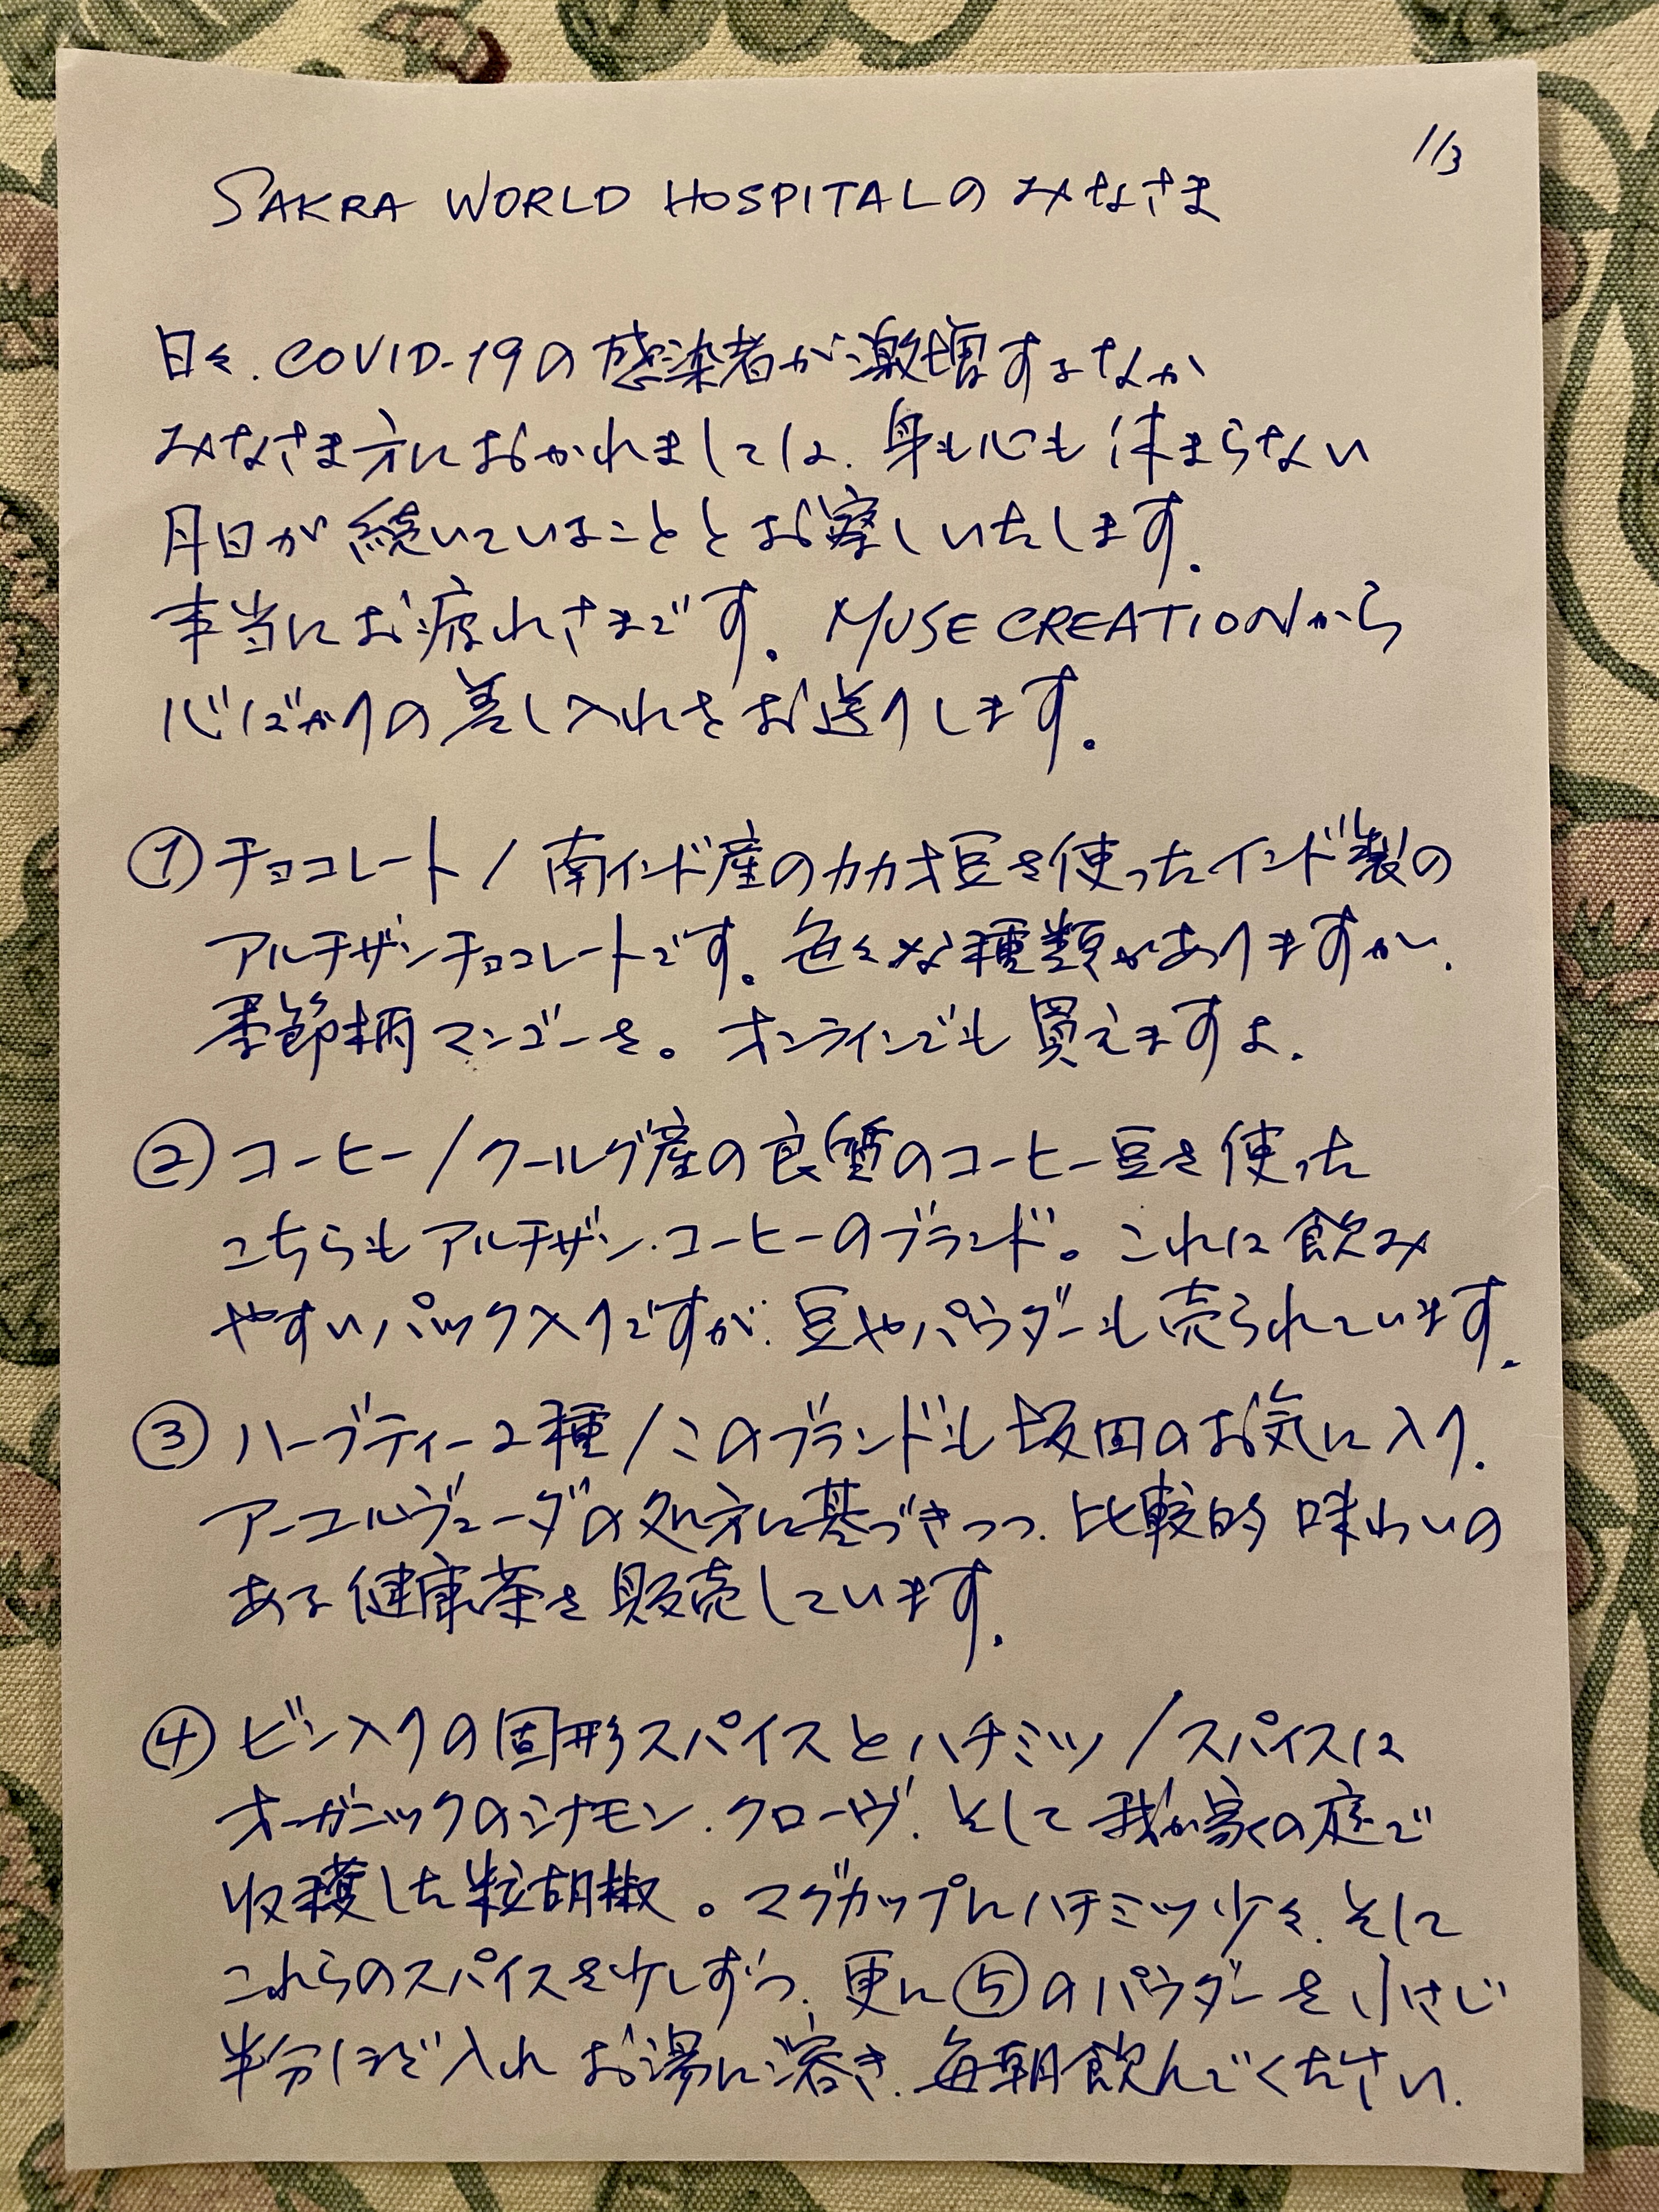 1/3
SAKRA WORLD HOSPITALのみなさま
日々、COVID-19の感染者が激増するなか
みなさま方におかれましては、身も心も休まらない
月日が続いていることとお察しいたします。
本当にお疲れさまです。MUSE CREATIONから
心ばかりの差し入れをお送りします。
①チョコレート/南インド産のカカオ豆を使ったインド製の
アルチザンチョコレートです。色々な種類がありますが、
季節柄マンゴーを。オンラインでも買えますよ。
②コーヒー/クールグ産の良質のコーヒー豆を使った
こちらもアルチザン・コーヒーのブランド。これは飲み
やすいパック入りですが、豆やパウダーも売られています。
③ハーブティー2種/このブランドも坂田のお気に入り。
アーユルヴェーダの処方に基づきつつ、比較的味わいの
ある健康茶を販売しています。
④ビン入りの固形スパイスとハチミツ/スパイスは
オーガニックのシナモン、クローヴ、そして我が家の庭で
収穫した粒胡椒。マグカップにハチミツ少々、そして
これらのスパイスを少しずつ、更に⑤のパウダーを小さじ
半分ほど入れお湯に溶き、毎朝飲んでください。